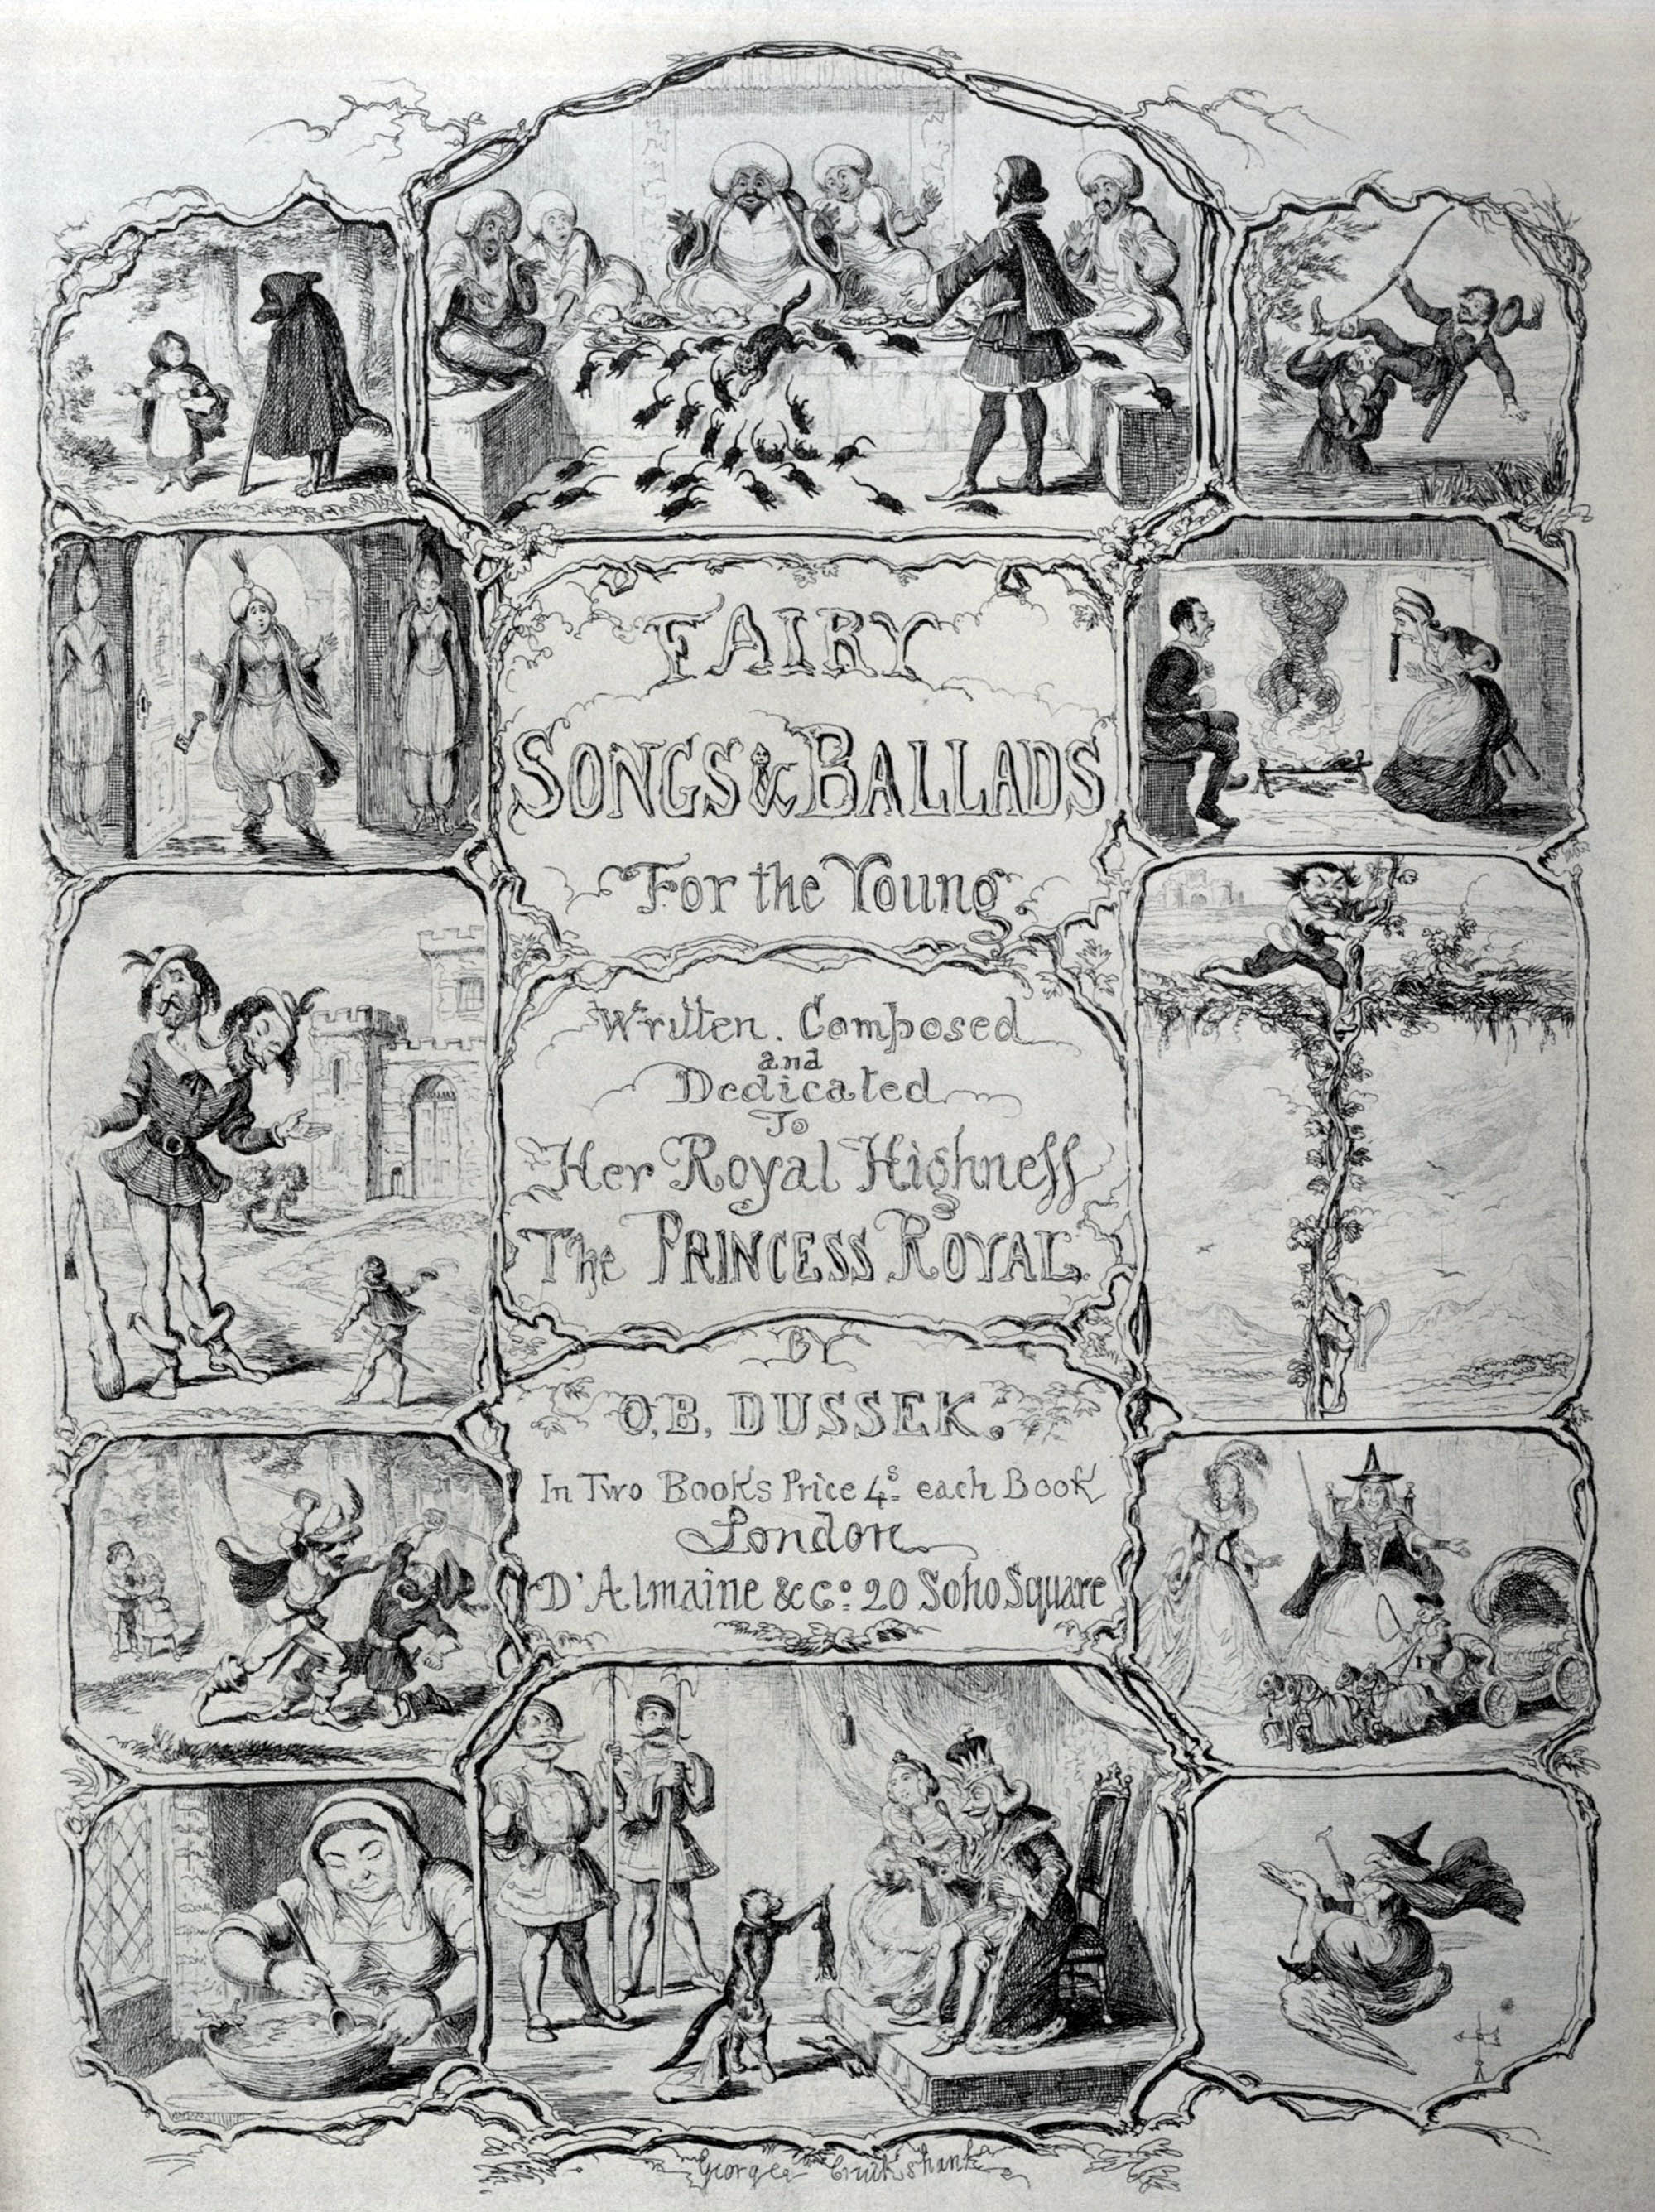 FAIRY
SONGS & BALLADS
For the Young.
Written. Composed
and
Dedicated
To
Her Royal Highneſs
The PRINCESS ROYAL.
BY
O.B. DUSSEK.
In Two Books Price 4s. each Book
London
D'Almaine & Co. 20 Soho Square
George Cruikshank